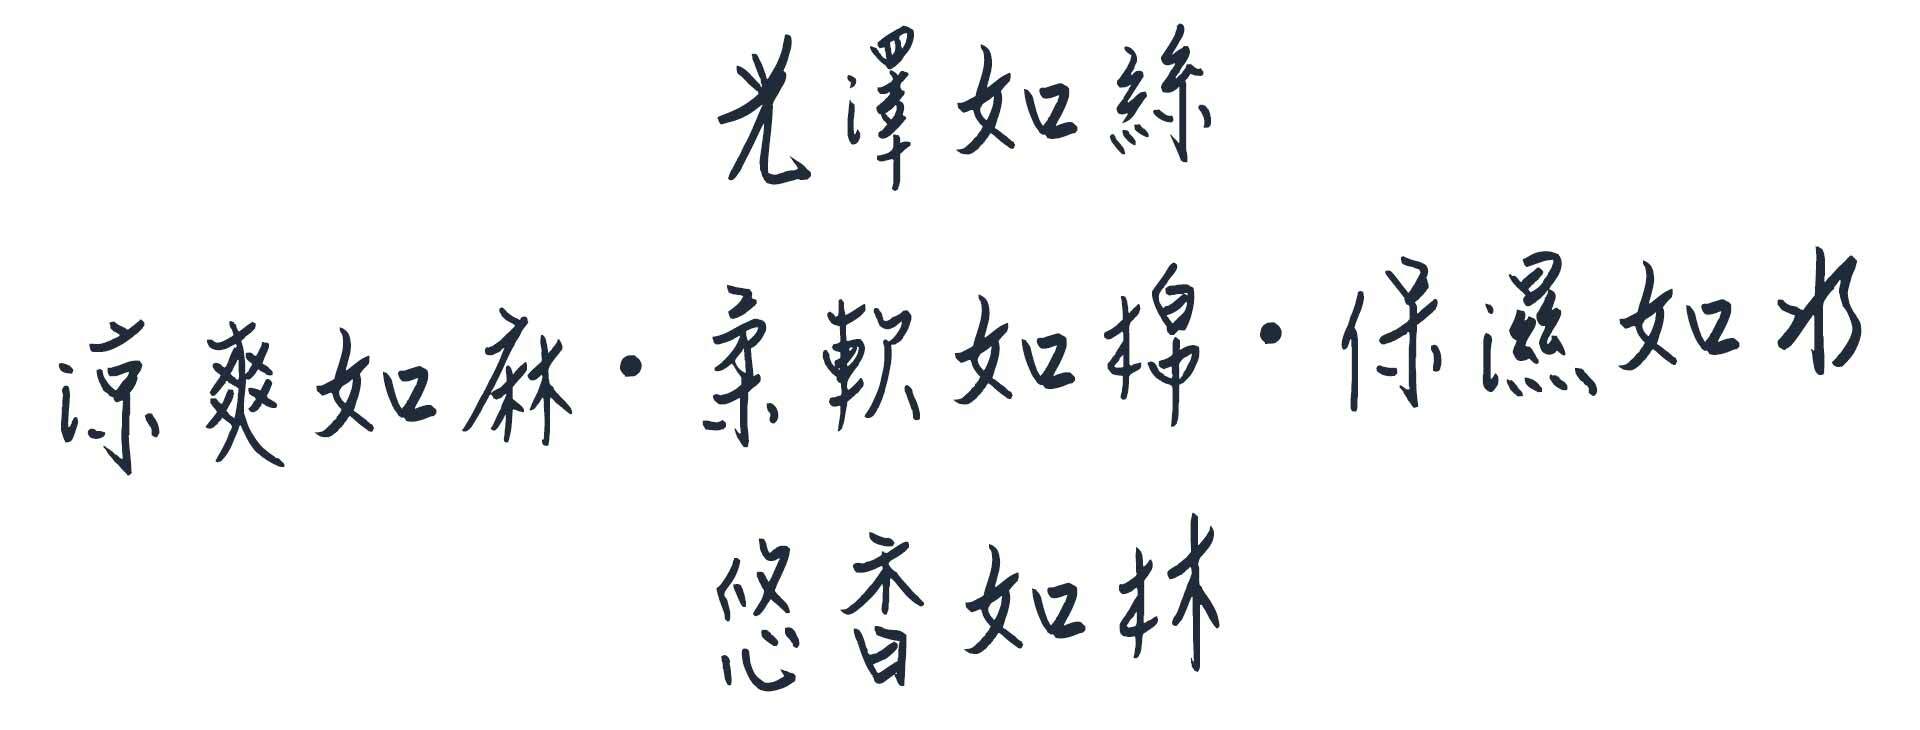 光澤如絲
涼爽如麻・柔軟如棉・保濕如水
悠香如林